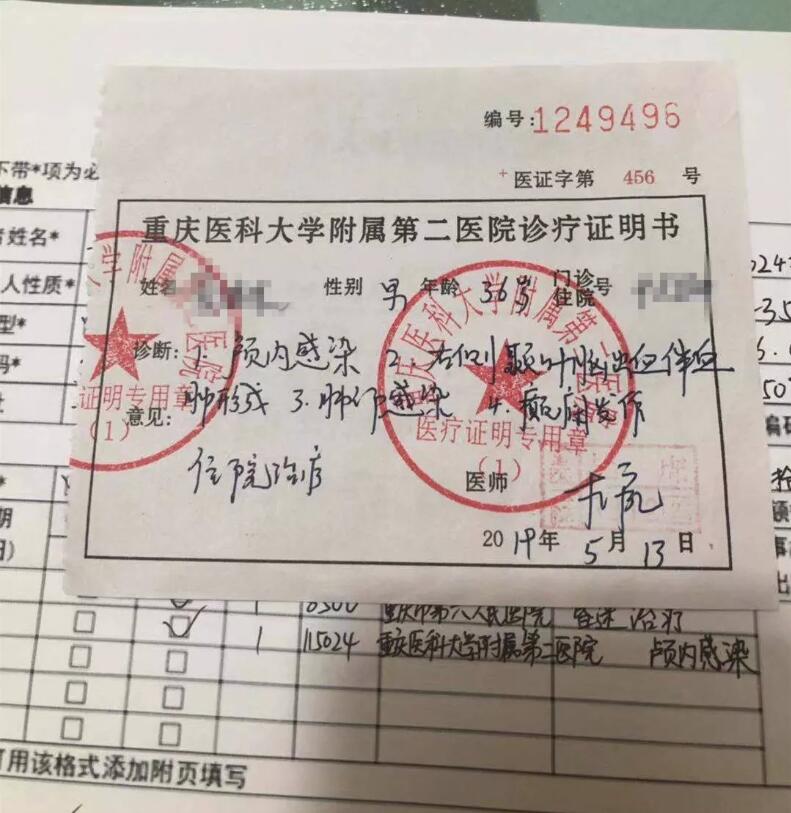 编号:1249496
医证字第 456 号
不带*项为必
信息
重庆医科大学附属第二医院诊疗证明书
者姓名*
人性质*
姓名 性别 男 年龄 36岁 门诊住院号
诊断: 1. 颅内感染 2. 右侧颞叶脑出血伴血
肿形成 3. 肺部感染 4. 癫痫发作
意见:
住院治疗
医师
2019年5月13日
大学附属第二医院
证明专用章
(1)
重庆医科大学附属第二医院
医疗证明专用章
(1)
编码
1 6300 重庆市第六人民医院 治疗
1 115024 重庆医科大学附属第二医院 颅内感染
可用该格式添加附页填写